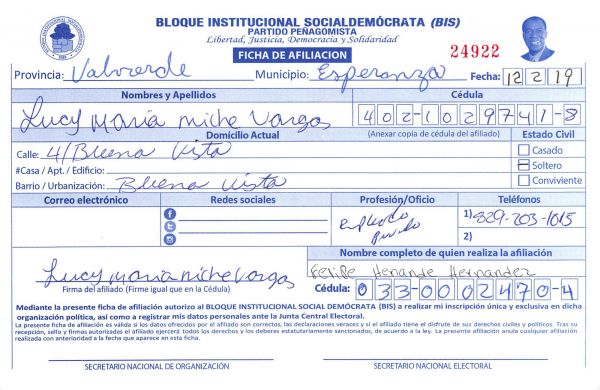 BLOQUE INSTITUCIONAL SOCIALDEMÓCRATA (BIS)
PARTIDO PEÑAGOMISTA
Libertad, Justicia, Democracia y Solidaridad
FICHA DE AFILIACION
24922
Provincia: Valverde Municipio: Esperanza Fecha: 12 2 19
Nombres y Apellidos Cédula
Lucy Maria niche Vargas 402-1029741-8
Domicilio Actual (Anexar copia de cédula del afiliado) Estado Civil
Calle: 4/Buena Vista Casado
#Casa / Apt. / Edificio: Soltero
Barrio / Urbanización: Buena Vista Conviviente
Correo electrónico Redes sociales Profesión/Oficio Teléfonos
Empleado 1) 829-203-1015
Privado 2)
Nombre completo de quien realiza la afiliación
Lucy Maria niche Vargas Felipe Henande Hernandez
Firma del afiliado (Firme igual que en la Cédula) Cédula: 033-0002470-4
Mediante la presente ficha de afiliación autorizo al BLOQUE INSTITUCIONAL SOCIAL DEMÓCRATA (BIS) a realizar mi inscripción única y exclusiva en dicha
organización política, así como a registrar mis datos personales ante la Junta Central Electoral.
La presente ficha de afiliación es válida si los datos ofrecidos por el afiliado son correctos, las declaraciones veraces y si el afiliado tiene el disfrute de sus derechos civiles y políticos. Tras su
recepción, sello y firmas autorizadas el afiliado ejercerá todos los derechos y los deberes estatutariamente sancionados, de acuerdo a la ley. La presente afiliación anula cualquier afiliación
realizada con anterioridad a la fecha que aparece en esta ficha.
SECRETARIO NACIONAL DE ORGANIZACIÓN SECRETARIO NACIONAL ELECTORAL